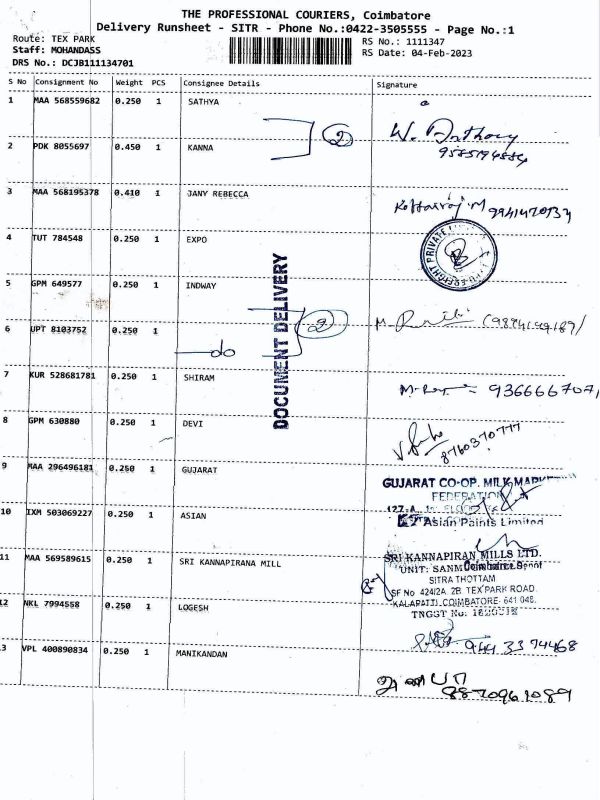 THE PROFESSIONAL COURIERS, Coimbatore
Delivery Runsheet - SITR - Phone No.:0422-3505555 - Page No.:1
Route: TEX PARK
RS No.: 1111347
Staff: MOHANDASS
RS Date: 04-Feb-2023
DRS No.: DCJB111134701
S No Consignment No Weight PCS Consignee Details Signature
1 MAA 568559682 0.250 1 SATHYA
2
2 PDK 8055697 0.450 1 KANNA
3 MAA 568195378 0.410 1 JANY REBECCA
4 TUT 784548 0.250 1 EXPO
5 GPM 649577 0.250 1 INDWAY
DOCUMENT DELIVERY
2
6 UPT 8103752 0.250 1
do
7 KUR 528681781 0.250 1 SHIRAM
8 GPM 630880 0.250 1 DEVI
8760370777
9 MAA 296496181 0.250 1 GUJARAT
GUJARAT CO-OP. MILK MARKETING
FEDERATION
10 IXM 503069227 0.250 1 ASIAN
Asian Paints Limited
11 MAA 569589615 0.250 1 SRI KANNAPIRANA MILL
SRI KANNAPIRAN MILLS LTD.
UNIT: SANM
SITRA THOTTAM
SF No 424/2A, 2B, TEX PARK ROAD
KALAPATTI, COIMBATORE- 641 048.
TNGST No:
12 NKL 7994558 0.250 1 LOGESH
944 3394468
13 VPL 400890834 0.250 1 MANIKANDAN
8870961089